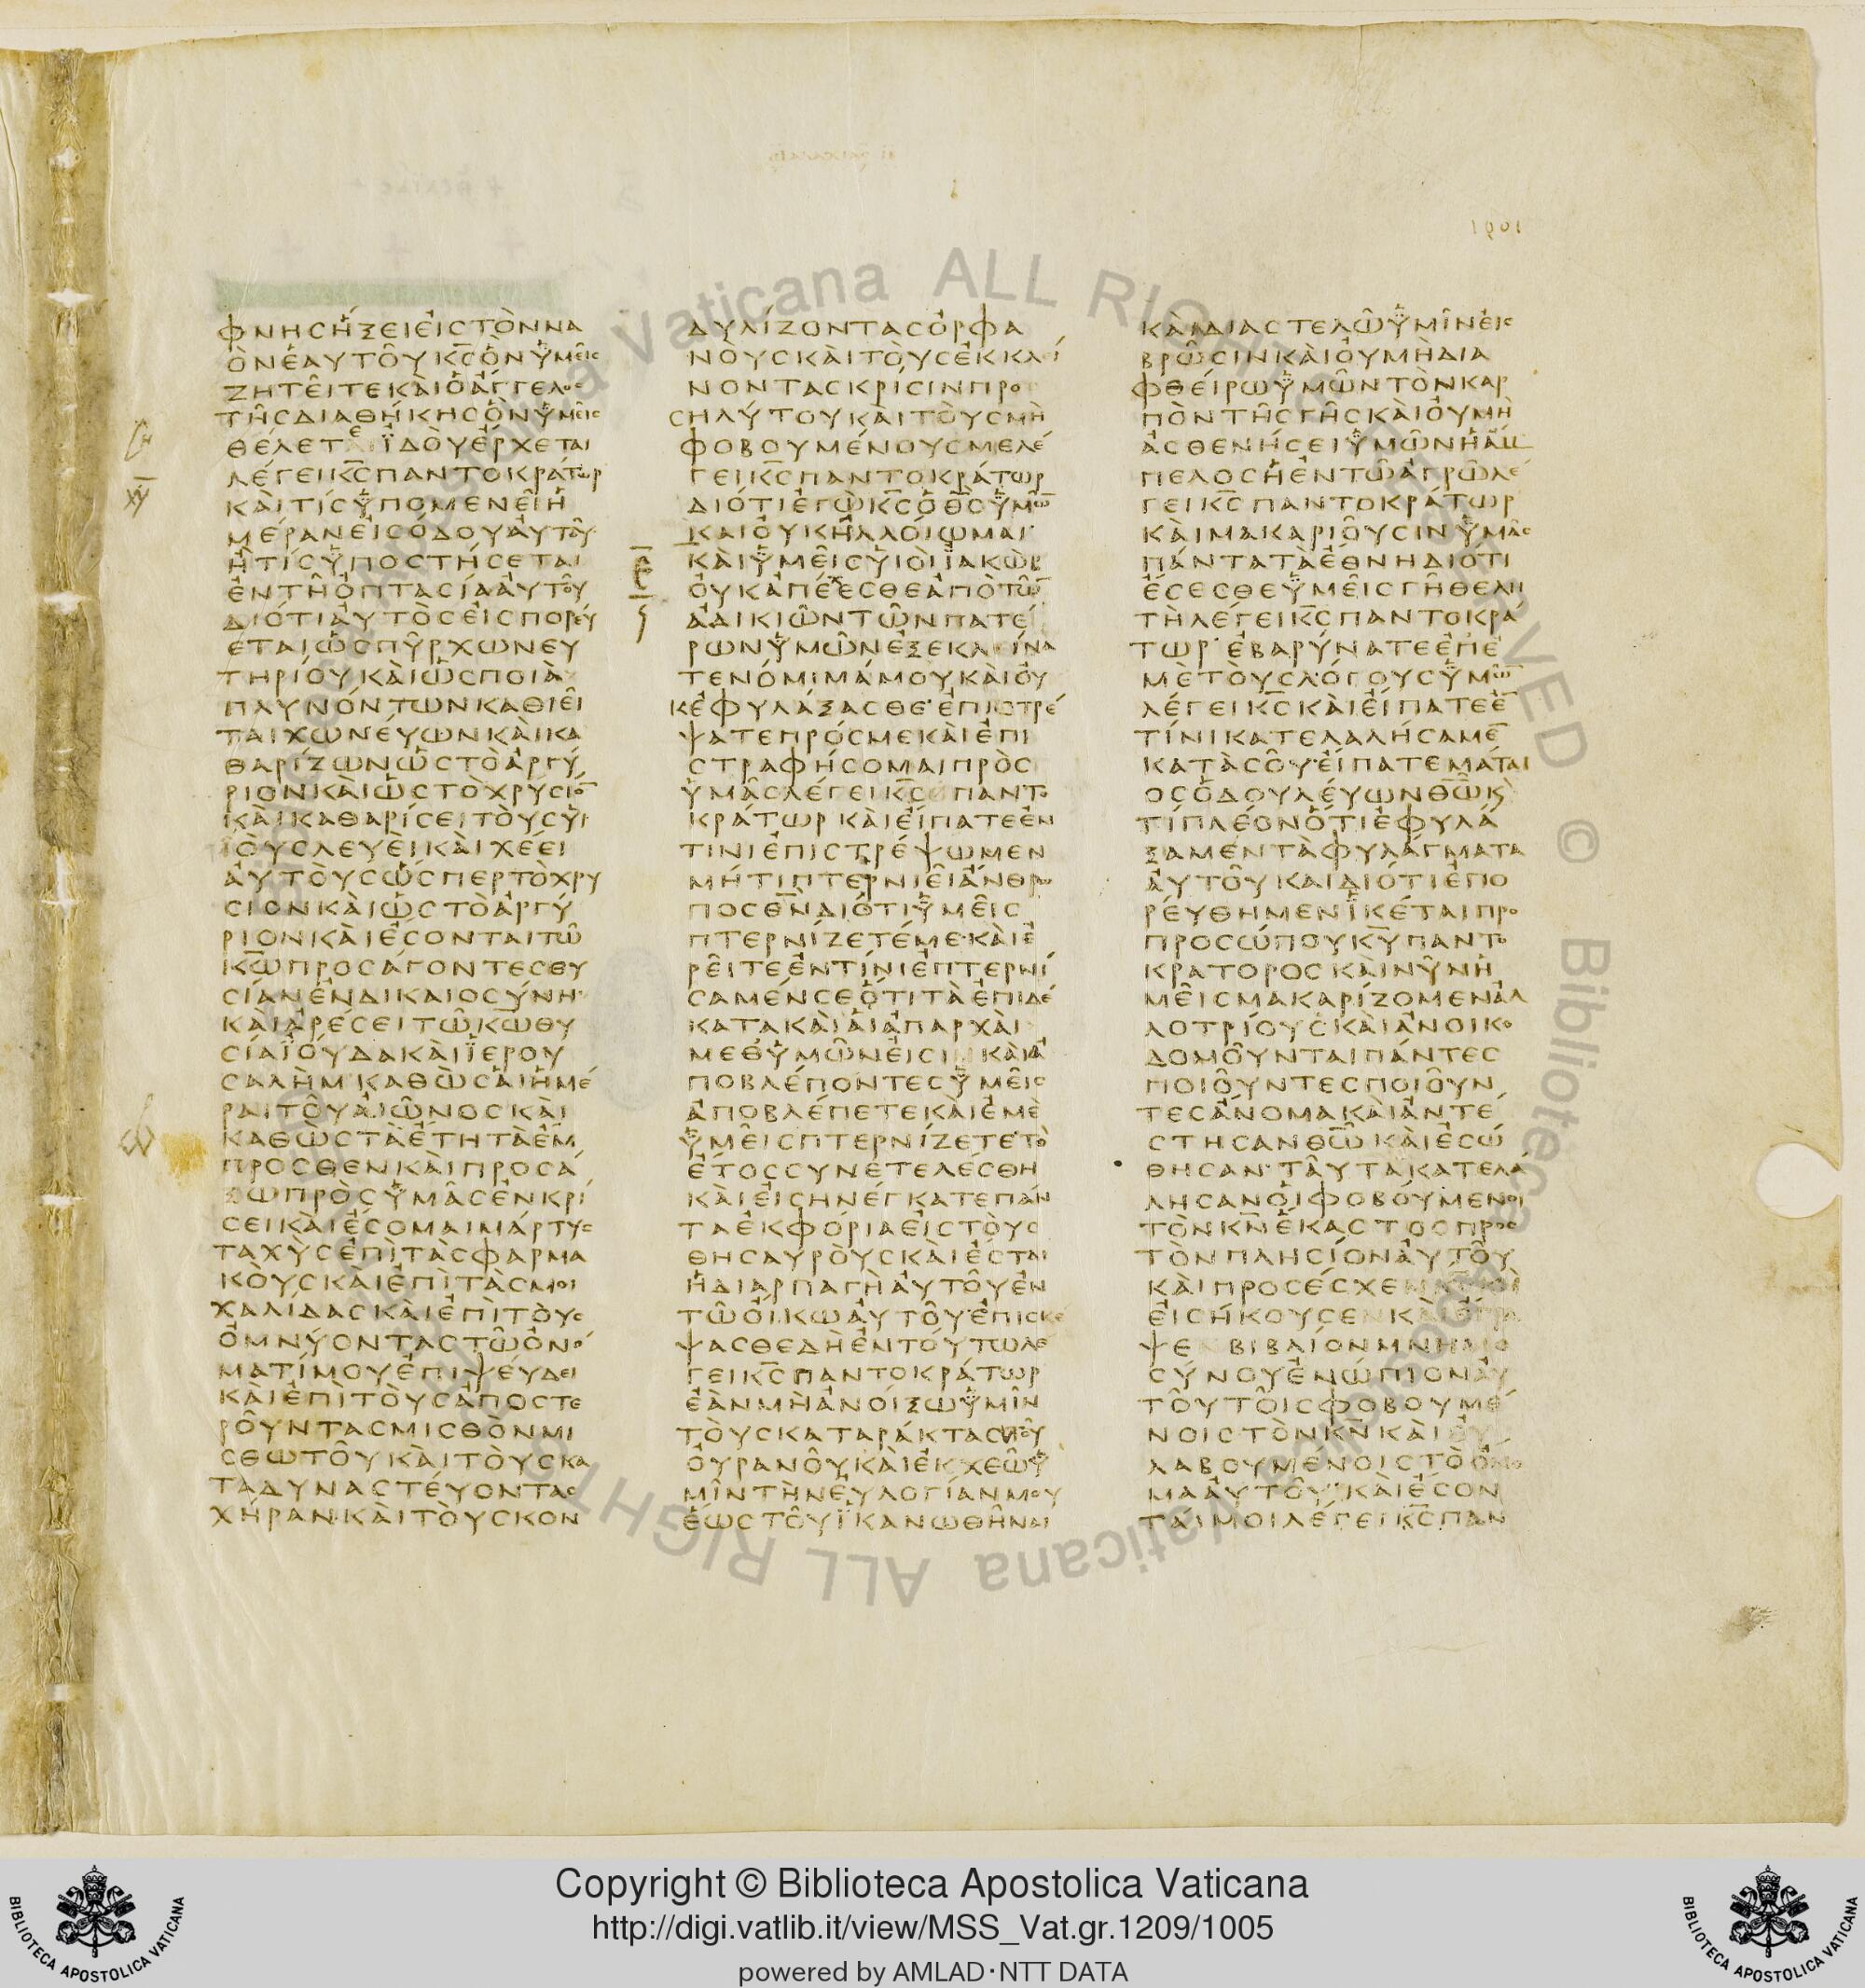 ΦΝΗСΗΞΕΙΕΙСΤΟΝΝΑ
ΟΝΕΑΥΤΟΥΚ̅С̅ΟΝΥΜΕΙС
ΖΗΤΕΙΤΕΚΑΙΟΑΓΓΕΛΟС
ΤΗСΔΙΑΘΗΚΗСΟΝΥΜΕΙС
ΘΕΛΕΤΕΪΔΟΥΕΡΧΕΤΑΙ
ΛΕΓΕΙΚ̅С̅ΠΑΝΤΟΚΡΑΤΩΡ
ΚΑΙΤΙСΥΠΟΜΕΝΕΙΗ
ΜΕΡΑΝΕΙСΟΔΟΥΑΥΤΟΥ
ΗΤΙСΥΠΟСΤΗСΕΤΑΙ
ΕΝΤΗΟΠΤΑСΙΑΑΥΤΟΥ
ΔΙΟΤΙΑΥΤΟСΕΙСΠΟΡΕΥ
ΕΤΑΙΩСΠΥΡΧΩΝΕΥ
ΤΗΡΙΟΥΚΑΙΩСΠΟΙΑ
ΠΛΥΝΟΝΤΩΝΚΑΘΙΕΙ
ΤΑΙΧΩΝΕΥΩΝΚΑΙΚΑ
ΘΑΡΙΖΩΝΩСΤΟΑΡΓΥ
ΡΙΟΝΚΑΙΩСΤΟΧΡΥСΙΟ̅
ΚΑΙΚΑΘΑΡΙСΕΙΤΟΥСΥΙ
ΟΥСΛΕΥΕΙΚΑΙΧΕΕΙ
ΑΥΤΟΥСΩСΠΕΡΤΟΧΡΥ
СΙΟΝΚΑΙΩСΤΟΑΡΓΥ
ΡΙΟΝΚΑΙΕСΟΝΤΑΙΤΩ
Κ̅Ω̅ΠΡΟСΑΓΟΝΤΕСΘΥ
СΙΑΝΕΝΔΙΚΑΙΟСΥΝΗ
ΚΑΙΑΡΕСΕΙΤΩΚ̅Ω̅ΘΥ
СΙΑΪΟΥΔΑΚΑΙΪΕΡΟΥ
СΑΛΗΜΚΑΘΩСΑΙΗΜΕ
ΡΑΙΤΟΥΑΙΩΝΟСΚΑΙ
ΚΑΘΩСΤΑΕΤΗΤΑΕΜ
ΠΡΟСΘΕΝΚΑΙΠΡΟСΑ
ΞΩΠΡΟСΥΜΑСΕΝΚΡΙ
СΕΙΚΑΙΕСΟΜΑΙΜΑΡΤΥС
ΤΑΧΥСΕΠΙΤΑСΦΑΡΜΑ
ΚΟΥСΚΑΙΕΠΙΤΑСΜΟΙ
ΧΑΛΙΔΑСΚΑΙΕΠΙΤΟΥС
ΟΜΝΥΟΝΤΑСΤΩΟΝΟ
ΜΑΤΙΜΟΥΕΠΙΨΕΥΔΕΙ
ΚΑΙΕΠΙΤΟΥСΑΠΟСΤΕ
ΡΟΥΝΤΑСΜΙСΘΟΝΜΙ
СΘΩΤΟΥΚΑΙΤΟΥСΚΑ
ΤΑΔΥΝΑСΤΕΥΟΝΤΑС
ΧΗΡΑΝΚΑΙΤΟΥСΚΟΝ
ΔΥΛΙΖΟΝΤΑСΟΡΦΑ
ΝΟΥСΚΑΙΤΟΥСΕΚΚΛΙ
ΝΟΝΤΑСΚΡΙСΙΝΠΡΟ
СΗΛΥΤΟΥΚΑΙΤΟΥСΜΗ
ΦΟΒΟΥΜΕΝΟΥСΜΕΛΕ
ΓΕΙΚ̅С̅ΠΑΝΤΟΚΡΑΤΩΡ
ΔΙΟΤΙΕΓΩΚ̅С̅ΟΘ̅С̅ΥΜΩ̅
ΚΑΙΟΥΚΗΛΛΟΙΩΜΑΙ
ΚΑΙΥΜΕΙСΥΙΟΙΪΑΚΩΒ
ΟΥΚΑΠΕΧΕСΘΕΑΠΟΤΩ̅
ΑΔΙΚΙΩΝΤΩΝΠΑΤΕ
ΡΩΝΥΜΩΝΕΞΕΚΛΕΙΝΑ
ΤΕΝΟΜΙΜΑΜΟΥΚΑΙΟΥ
ΚΕΦΥΛΑΞΑСΘΕΕΠΙСΤΡΕ
ΨΑΤΕΠΡΟСΜΕΚΑΙΕΠΙ
СΤΡΑΦΗСΟΜΑΙΠΡΟС
ΥΜΑСΛΕΓΕΙΚ̅С̅ΠΑΝΤΟ
ΚΡΑΤΩΡΚΑΙΕΙΠΑΤΕΕΝ
ΤΙΝΙΕΠΙСΤΡΕΨΩΜΕΝ
ΜΗΤΙΠΤΕΡΝΙΕΙΑΝΘΡΩ
ΠΟСΘ̅Ν̅ΔΙΟΤΙΥΜΕΙС
ΠΤΕΡΝΙΖΕΤΕΜΕΚΑΙΕ
ΡΕΙΤΕΕΝΤΙΝΙΕΠΤΕΡΝΙ
СΑΜΕΝСΕΟΤΙΤΑΕΠΙΔΕ
ΚΑΤΑΚΑΙΑΙΑΠΑΡΧΑΙ
ΜΕΘΥΜΩΝΕΙСΙΝΚΑΙΑ
ΠΟΒΛΕΠΟΝΤΕСΥΜΕΙС
ΑΠΟΒΛΕΠΕΤΕΚΑΙΕΜΕ
ΥΜΕΙСΠΤΕΡΝΙΖΕΤΕΤΟ
ΕΤΟССΥΝΕΤΕΛΕСΘΗ
ΚΑΙΕΙСΗΝΕΓΚΑΤΕΠΑΝ
ΤΑΕΚΦΟΡΙΑΕΙСΤΟΥС
ΘΗСΑΥΡΟΥСΚΑΙΕСΤΑΙ
ΗΔΙΑΡΠΑΓΗΑΥΤΟΥΕΝ
ΤΩΟΙΚΩΑΥΤΟΥΕΠΙСΚΕ
ΨΑСΘΕΔΗΕΝΤΟΥΤΩΛΕ
ΓΕΙΚ̅С̅ΠΑΝΤΟΚΡΑΤΩΡ
ΕΑΝΜΗΑΝΟΙΞΩΥΜΙΝ
ΤΟΥСΚΑΤΑΡΑΚΤΑСΤΟΥ
ΟΥΡΑΝΟΥΚΑΙΕΚΧΕΩΥ
ΜΙΝΤΗΝΕΥΛΟΓΙΑΝΜΟΥ
ΕΩСΤΟΥΪΚΑΝΩΘΗΝΑΙ
ΚΑΙΔΙΑСΤΕΛΩΥΜΙΝΕΙС
ΒΡΩСΙΝΚΑΙΟΥΜΗΔΙΑ
ΦΘΕΙΡΩΥΜΩΝΤΟΝΚΑΡ
ΠΟΝΤΗСΓΗСΚΑΙΟΥΜΗ
ΑСΘΕΝΗСΕΙΥΜΩΝΗΑΜ
ΠΕΛΟСΗΕΝΤΩΑΓΡΩΛΕ
ΓΕΙΚ̅С̅ΠΑΝΤΟΚΡΑΤΩΡ
ΚΑΙΜΑΚΑΡΙΟΥСΙΝΥΜΑС
ΠΑΝΤΑΤΑΕΘΝΗΔΙΟΤΙ
ΕСΕСΘΕΥΜΕΙСΓΗΘΕΛΗ
ΤΗΛΕΓΕΙΚ̅С̅ΠΑΝΤΟΚΡΑ
ΤΩΡΕΒΑΡΥΝΑΤΕΕΠΕ
ΜΕΤΟΥСΛΟΓΟΥСΥΜΩ̅
ΛΕΓΕΙΚ̅С̅ΚΑΙΕΙΠΑΤΕΕ̅
ΤΙΝΙΚΑΤΕΛΑΛΗСΑΜΕ̅
ΚΑΤΑСΟΥΕΙΠΑΤΕΜΑΤΑΙ
ΟСΟΔΟΥΛΕΥΩΝΘ̅Ω̅Κ
ΤΙΠΛΕΟΝΟΤΙΕΦΥΛΑ
ΞΑΜΕΝΤΑΦΥΛΑΓΜΑΤΑ
ΑΥΤΟΥΚΑΙΔΙΟΤΙΕΠΟ
ΡΕΥΘΗΜΕΝΪΚΕΤΑΙΠΡΟ
ΠΡΟСΩΠΟΥΚ̅Υ̅ΠΑΝΤΟ
ΚΡΑΤΟΡΟСΚΑΙΝΥΝΗ
ΜΕΙСΜΑΚΑΡΙΖΟΜΕΝΑΛ
ΛΟΤΡΙΟΥСΚΑΙΑΝΟΙΚΟ
ΔΟΜΟΥΝΤΑΙΠΑΝΤΕС
ΠΟΙΟΥΝΤΕСΠΟΙΟΥΝ
ΤΕСΑΝΟΜΑΚΑΙΑΝΤΕ
СΤΗСΑΝΘ̅Ω̅ΚΑΙΕСΩ
ΘΗСΑΝΤΑΥΤΑΚΑΤΕΛΑ
ΛΗСΑΝΟΙΦΟΒΟΥΜΕΝΟΙ
ΤΟΝΚ̅Ν̅ΕΚΑСΤΟСΠΡΟС
ΤΟΝΠΛΗСΙΟΝΑΥΤΟΥ
ΚΑΙΠΡΟСΕСΧΕΝΚ̅С̅ΚΑΙ
ΕΙСΗΚΟΥСΕΝΚΑΙΕΓΡΑ
ΨΕΒΙΒΛΙΟΝΜΝΗΜΟ
СΥΝΟΥΕΝΩΠΙΟΝΑΥ
ΤΟΥΤΟΙСΦΟΒΟΥΜΕ
ΝΟΙСΤΟΝΚ̅Ν̅ΚΑΙΕΥ
ΛΑΒΟΥΜΕΝΟΙСΤΟΟΝΟ
ΜΑΑΥΤΟΥΚΑΙΕСΟΝ
ΤΑΙΜΟΙΛΕΓΕΙΚ̅С̅ΠΑΝ
Copyright © Biblioteca Apostolica Vaticana
http://digi.vatlib.it/view/MSS_Vat.gr.1209/1005
powered by AMLAD·NTT DATA
BIBLIOTECA APOSTOLICA VATICANA
BIBLIOTECA APOSTOLICA VATICANA